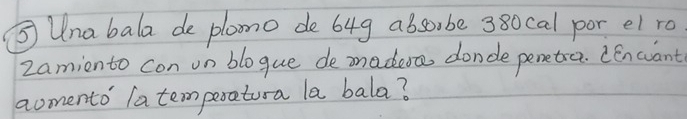 ⑤ Una bala de plomo de 64g absorbe 380cal por el ro
zamiento con un bloque de madera donde penetra. ¿En cuánt
aumentó la temperatura la bala?